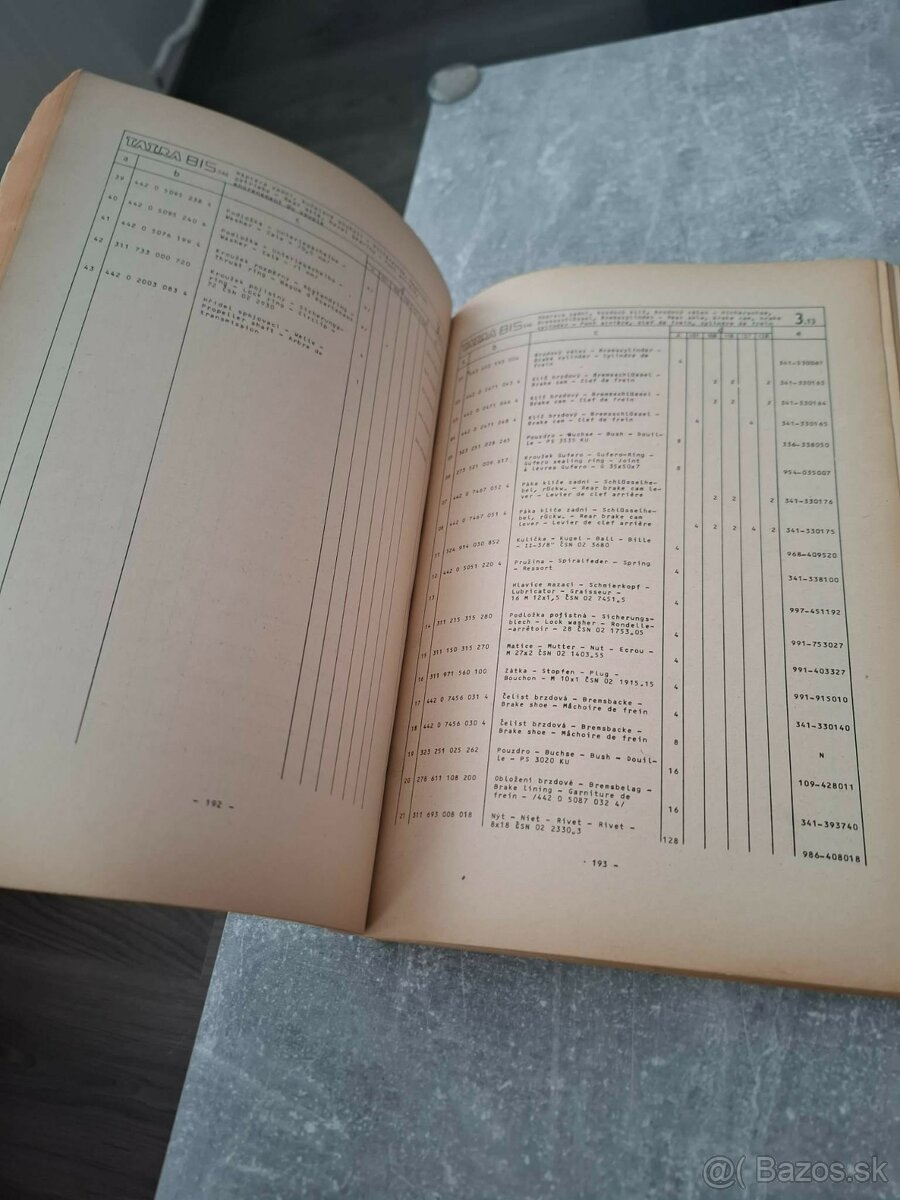 TATRA 815
a b c
39 442 0 5095 238 4
40 442 0 5095 240 4
41 442 0 5076 199 4
42 311 733 000 720
43 442 0 2003 083 4
Podložka - unterlegscheibe -
Podložka - unterlegscheibe -
Kroužek rozpěrný -
Thrust ring - Bague
Kroužek pojistný - Sicherungs-
ring - Lock ring - Circlip
72 ČSN 02 2930
Hřídel spojovací - Welle -
Propeller shaft - Arbre de
transmission
- 192 -
TATRA 815
3.53
b c d e
Brzdový válec - Bremszylinder -
Brake cylinder - Cylindre de
frein
4 341-330061
442 0 2471 047 4 Klíč brzdový - Bremsschlüssel -
Brake cam - Clef de frein
2 2 2 341-330163
442 0 2471 046 4 Klíč brzdový - Bremsschlüssel -
Brake cam - Clef de frein
2 2 2 341-330164
442 0 2471 048 4 Klíč brzdový - Bremsschlüssel -
Brake cam - Clef de frein
4 4 341-330165
323 251 028 265 Pouzdro - Buchse - Bush - Douil-
le - PS 3535 KU
8 336-338050
273 521 009 917 Kroužek Gufero - Gufero-Ring -
Gufero sealing ring - Joint
à lèvres Gufero - G 35x50x7
8 954-035007
07 442 0 7467 052 4 Páka klíče zadní - Schlüsselhe-
bel, rückw. - Rear brake cam le-
ver - Levier de clef arrière
2 2 2 341-330176
08 442 0 7467 051 4 Páka klíče zadní - Schlüsselhe-
bel, rückw. - Rear brake cam
lever - Levier de clef arrière
4 2 2 4 2 341-330175
11 324 914 030 852 Kulička - Kugel - Ball - Bille
- II-3/8" ČSN 02 3680
4 968-409520
12 442 0 5051 220 4 Pružina - Spiralfeder - Spring
- Ressort
4 341-338100
13 Hlavice mazací - Schmierkopf -
Lubricator - Graisseur -
16 M 12x1,5 ČSN 02 7451.5
4 997-451192
14 311 215 315 280 Podložka pojistná - Sicherungs-
blech - Lock washer - Rondelle-
-arrêtoir - 28 ČSN 02 1753.05
4 991-753027
15 311 150 315 270 Matice - Mutter - Nut - Ecrou -
M 27x2 ČSN 02 1403.55
4 991-403327
16 319 971 560 100 Zátka - Stopfen - Plug -
Bouchon - M 10x1 ČSN 02 1915.15
4 991-915010
17 442 0 7456 031 4 Čelist brzdová - Bremsbacke -
Brake shoe - Mâchoire de frein
4 341-330140
18 442 0 7456 030 4 Čelist brzdová - Bremsbacke -
Brake shoe - Mâchoire de frein
8 N
19 323 251 025 262 Pouzdro - Buchse - Bush - Douil-
le - PS 3020 KU
16 109-428011
20 278 611 108 200 Obložení brzdové - Bremsbelag -
Brake lining - Garniture de
frein - /442 0 5087 032 4/
16 341-393740
21 311 693 008 018 Nýt - Niet - Rivet - Rivet -
8x18 ČSN 02 2330.3
128 986-408018
- 193 -
@( Bazos.sk